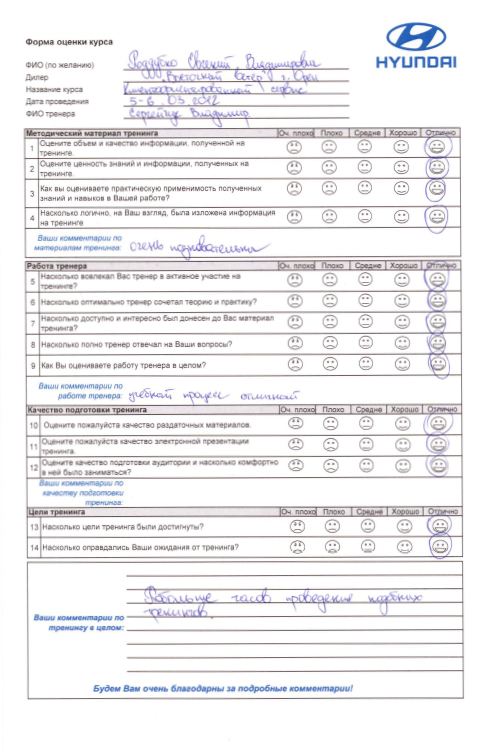 Форма оценки курса
HYUNDAI
ФИО (по желанию) Поддубко Евгений Владимирович
Дилер ООО "Восточный Ветер" г. Орел
Название курса Клиентоориентированный сервис
Дата проведения 5-6.03.2012
ФИО тренера Сергейчук Владимир
Методический материал тренинга Оч. плохо Плохо Средне Хорошо Отлично
1 Оцените объем и качество информации, полученной на
тренинге.
2 Оцените ценность знаний и информации, полученных на
тренинге.
3 Как вы оцениваете практическую применимость полученных
знаний и навыков в Вашей работе?
4 Насколько логично, на Ваш взгляд, была изложена информация
на тренинге
Ваши комментарии по
материалам тренинга: очень познавательны
Работа тренера Оч. плохо Плохо Средне Хорошо Отлично
5 Насколько вовлекал Вас тренер в активное участие на
тренинге?
6 Насколько оптимально тренер сочетал теорию и практику?
7 Насколько доступно и интересно был донесен до Вас материал
тренинга?
8 Насколько полно тренер отвечал на Ваши вопросы?
9 Как Вы оцениваете работу тренера в целом?
Ваши комментарии по
работе тренера: учебный процесс отличный
Качество подготовки тренинга Оч. плохо Плохо Средне Хорошо Отлично
10 Оцените пожалуйста качество раздаточных материалов.
11 Оцените пожалуйста качество электронной презентации
тренинга.
12 Оцените качество подготовки аудитории и насколько комфортно
в ней было заниматься?
Ваши комментарии по
качеству подготовки
тренинга:
Цели тренинга Оч. плохо Плохо Средне Хорошо Отлично
13 Насколько цели тренинга были достигнуты?
14 Насколько оправдались Ваши ожидания от тренинга?
Побольше часов проведение подобных
тренингов.
Ваши комментарии по
тренингу в целом:
Будем Вам очень благодарны за подробные комментарии!